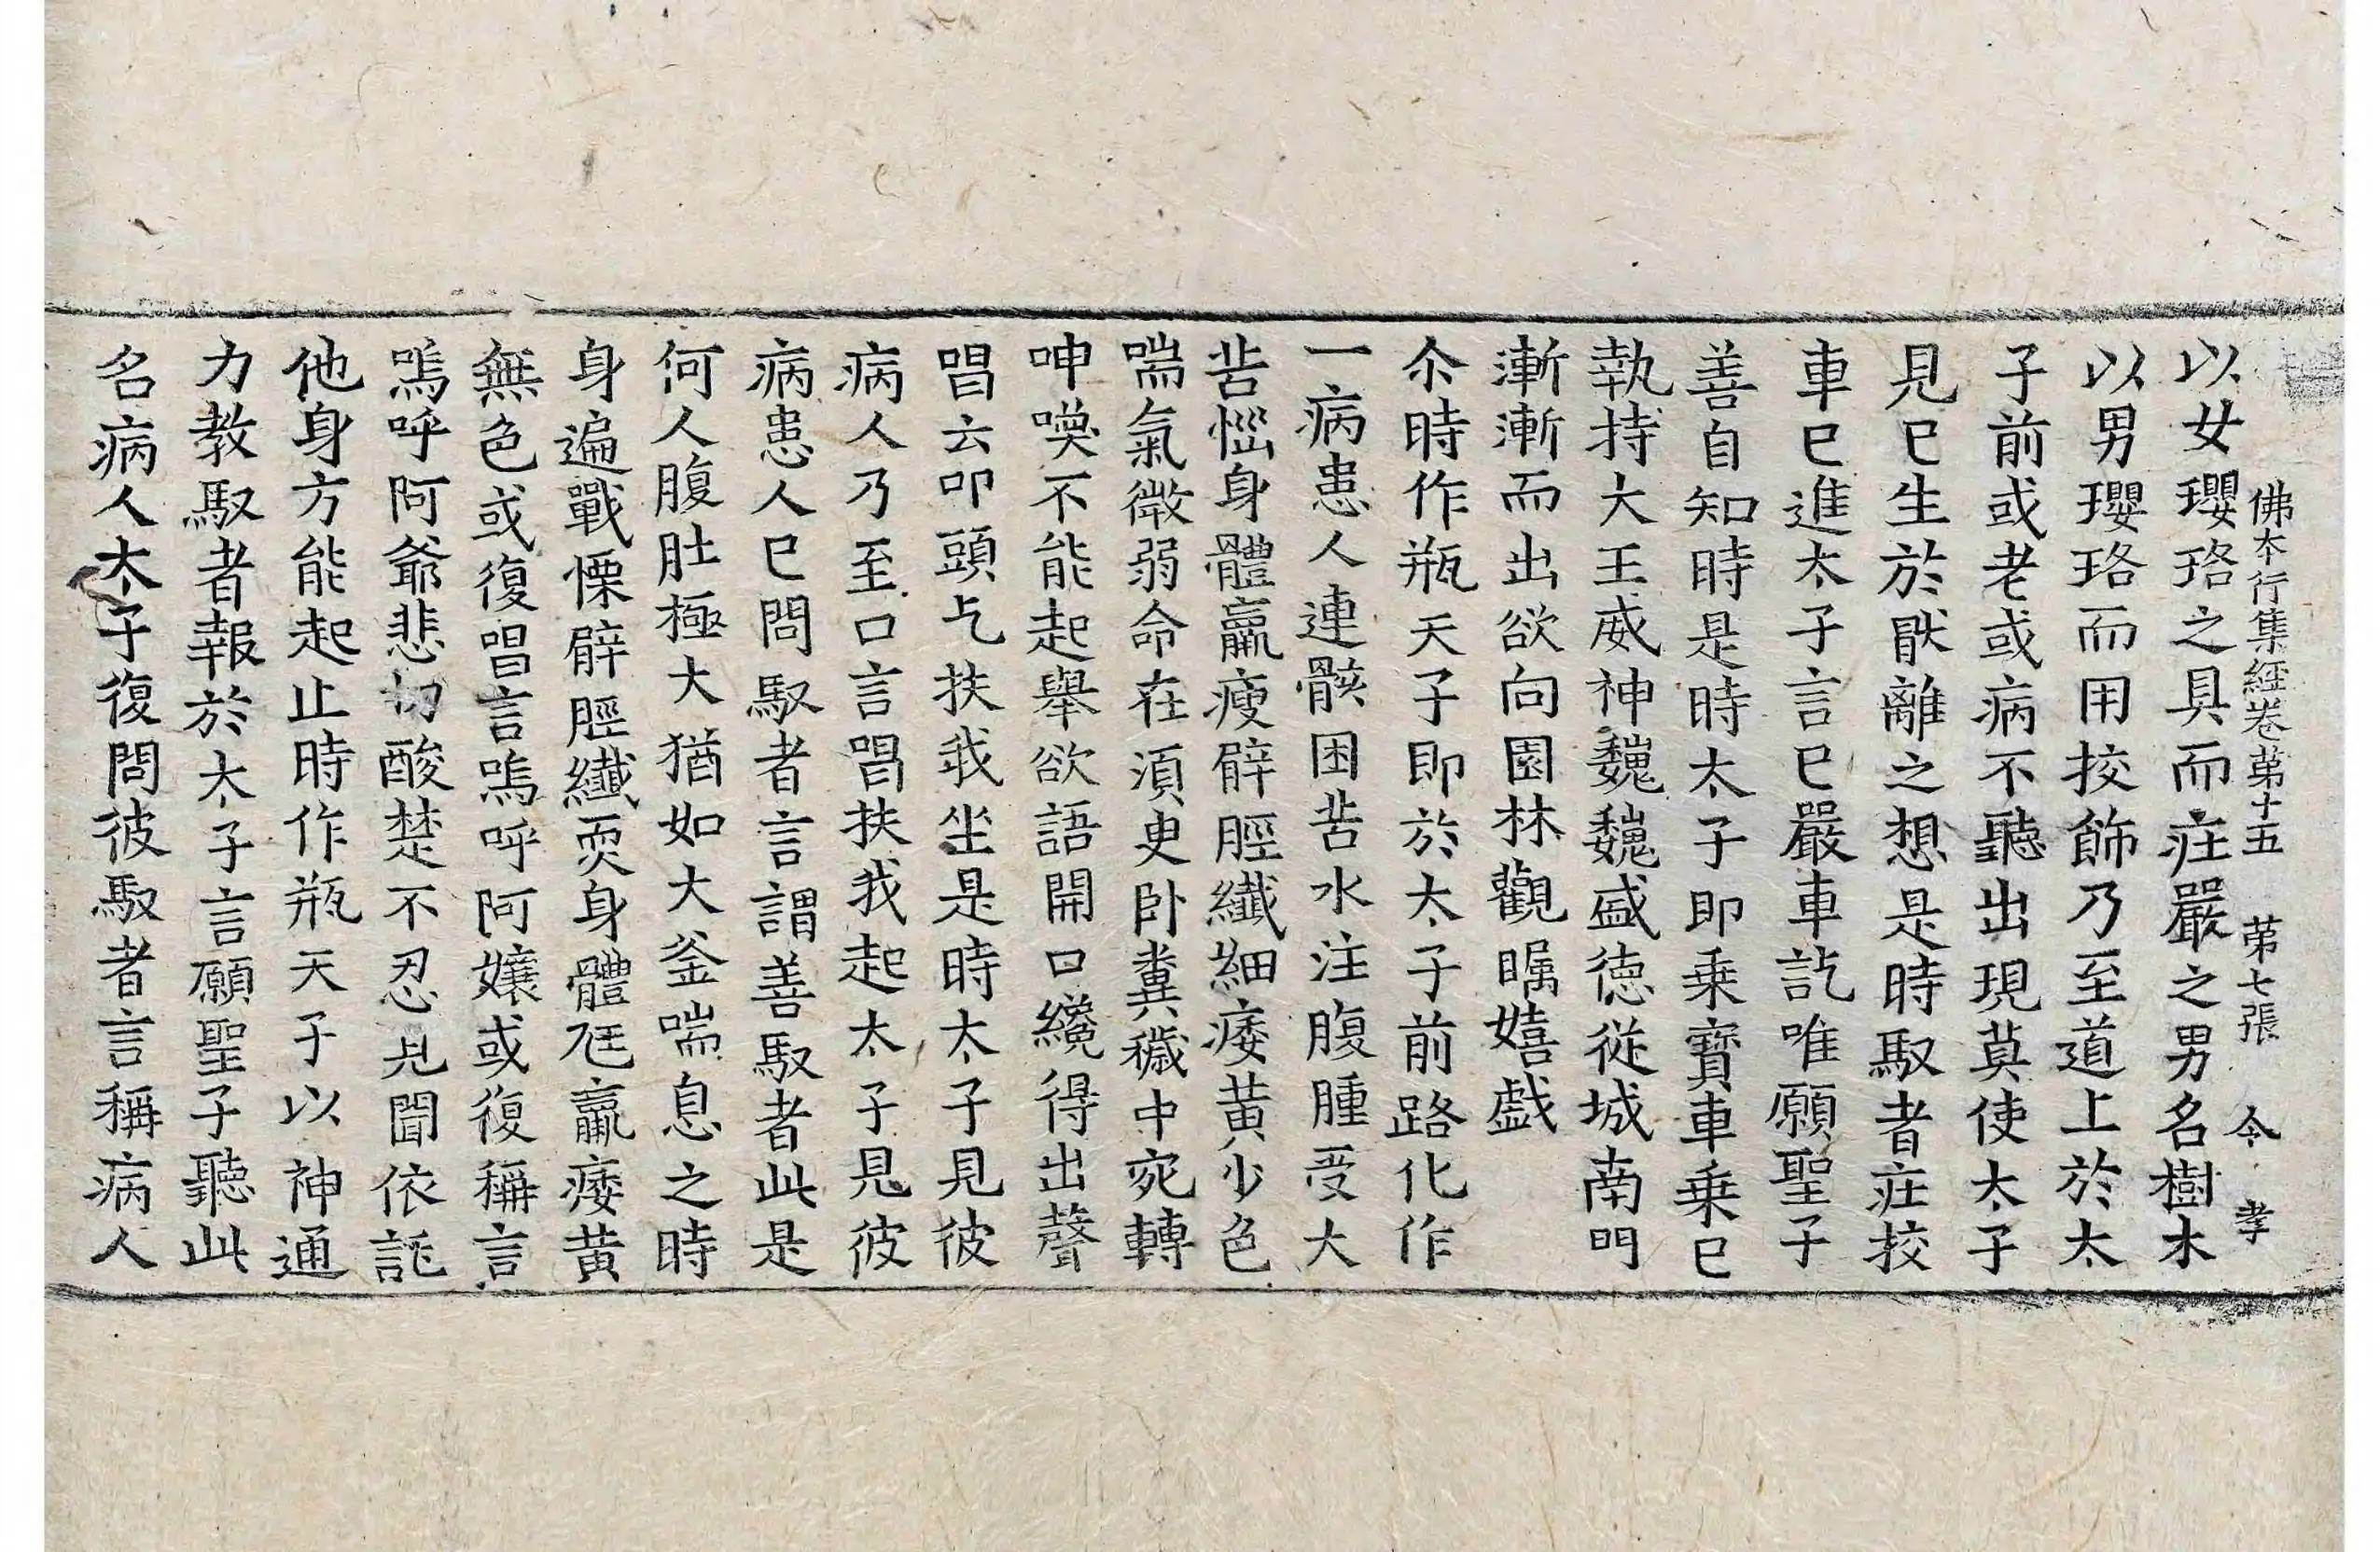 佛本行集經卷苐十五 苐七張 令 孝
以女瓔珞之具而庄嚴之男名樹木
以男瓔珞而用挍飾乃至道上於太
子前或老或病不聽出現莫使太子
見已生於猒離之想是時馭者庄挍
車已進太子言已嚴車訖唯願聖子
善自知時是時太子即乗寶車乗已
執持大王威神巍巍盛徳従城南門
漸漸而出欲向園林觀矚嬉戲
尒時作瓶天子即於太子前路化作
一病患人連骸困苦水注腹腫受大
苦惱身體羸瘦臂脛纖細痿黃少色
喘氣微弱命在湏臾卧糞穢中宛轉
呻喚不能起舉欲語開口纔得出聲
唱云叩頭乞扶我坐是時太子見彼
病人乃至口言唱扶我起太子見彼
病患人已問馭者言謂善馭者此是
何人腹肚極大猶如大釜喘息之時
身遍戰慄臂脛纖耎身體尫羸痿黃
無色或復唱言嗚呼阿孃或復稱言
嗚呼阿爺悲切酸楚不忍見聞依託
他身方能起止時作瓶天子以神通
力教馭者報於太子言願聖子聽此
名病人太子復問彼馭者言稱病人